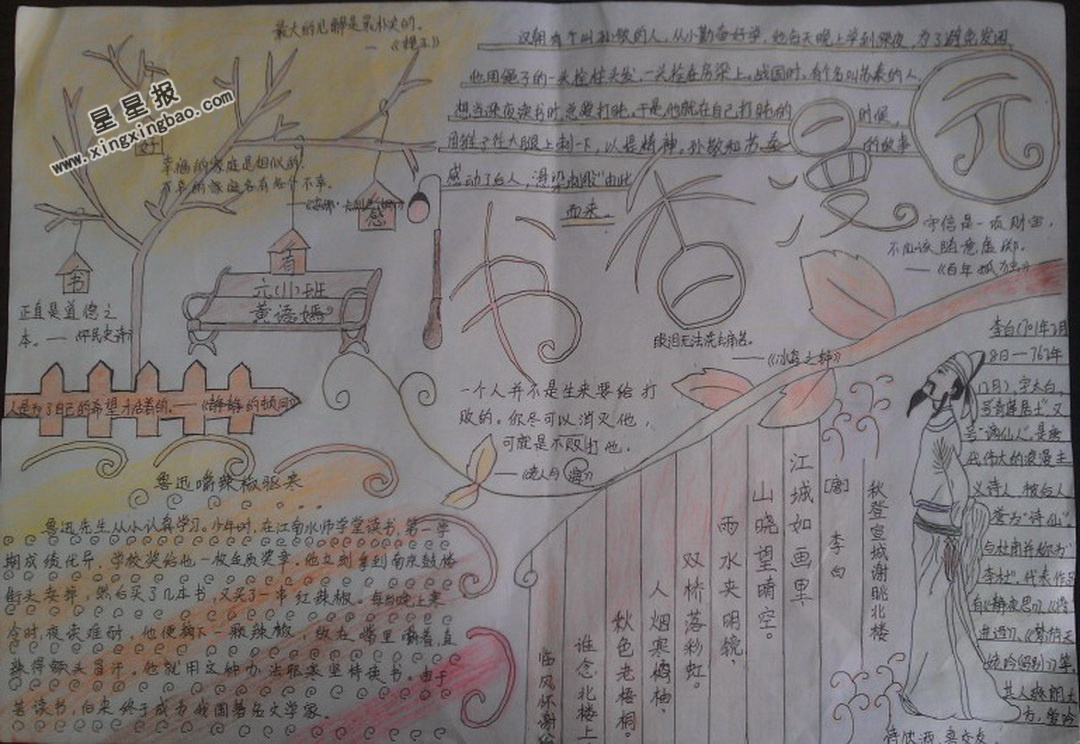 星星报
www.xingxingbao.com
最大的见解是最朴实的。
汉朝有个叫孙敬的人，从小勤奋好学，他每天晚上学到深夜，为了避免发困
他用绳子的一头拴住头发，一头拴在房梁上。战国时，有个名叫苏秦的人，
想当深夜读书时总要打盹，于是他就在自己打盹的时候，
用锥子往大腿上刺一下，以提精神。孙敬和苏秦的故事
感动了后人，"悬梁刺股"由此
而来。
书香漫元
幸福的家庭是相似的
不幸的家庭各有各个不幸。
书
有
感
六(11)班
黄语嫣
正直是道德之
本。
守信是一项财宝，
不应该随意虚掷。
——《百年孤独》
眼泪无法洗去痛苦。
——《冰岛之钟》
人是为了自己的希望才活着的。——《静静的顿河》
一个人并不是生来要给打
败的。你尽可以消灭他，
可就是不败打他。
——《老人与海》
鲁迅嚼辣椒驱寒
鲁迅先生从小认真学习。少年时，在江南水师学堂读书，第一学
期成绩优异，学校奖给他一枚金质奖章。他立刻拿到南京鼓楼
街头卖掉，然后买了几本书，又买了一串红辣椒。每当晚上寒
冷时，夜读难耐，他便摘下一颗辣椒，放在嘴里嚼着，直
辣得额头冒汗。他就用这种办法驱寒坚持读书。由于
苦读书，后来终于成为我国著名文学家。
秋登宣城谢眺北楼
[唐] 李白
江城如画里，
山晓望晴空。
雨水夹明镜，
双桥落彩虹。
人烟寒橘柚，
秋色老梧桐。
谁念北楼上
临风怀谢
李白(701年2月
8日—762年
12月)，字太白，
号青莲居士"，又
号"谪仙人"，是唐
代伟大的浪漫主
义诗人，被后人
誉为"诗仙"。
与杜甫并称为"
李杜"，代表作品
有《静夜思》、《
》、《梦游天
姥吟留别》等。
其人爽朗大
方，爱